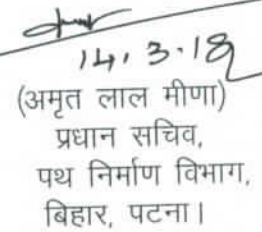 14.3.18
(अमृत लाल मीणा)
प्रधान सचिव,
पथ निर्माण विभाग,
बिहार, पटना।